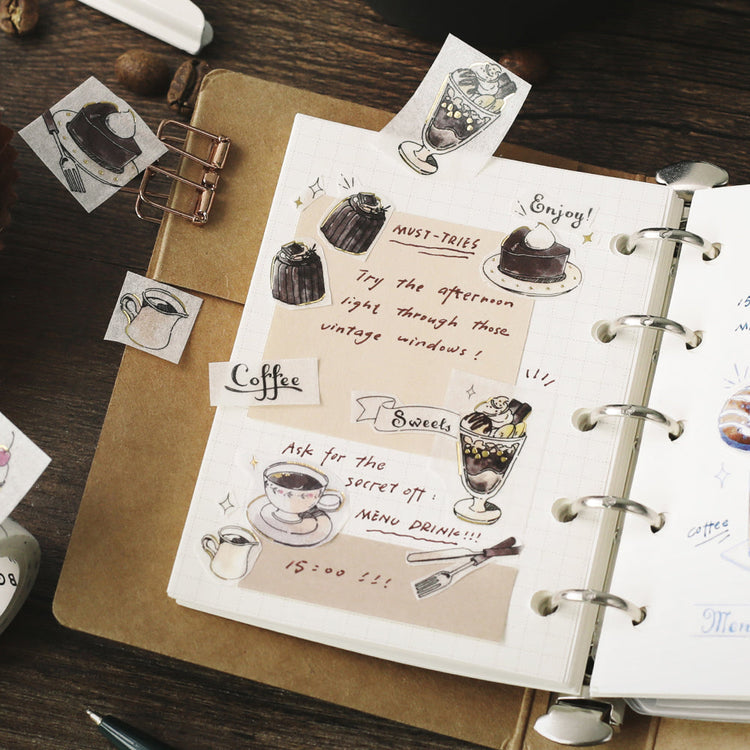 Enjoy!
MUST-TRIES
Try the afternoon
light through those
vintage windows!
Coffee
Sweets
Ask for the
secret off:
MENU DRINK!!!
15:00 !!!
coffee